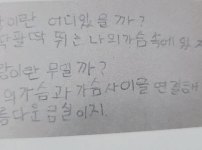 이란 어디있을까?
딱 뛰는 나의가슴속에 있지
이란 무얼까?
의가슴과 가슴사이를 연결해
름다운 금실이지.